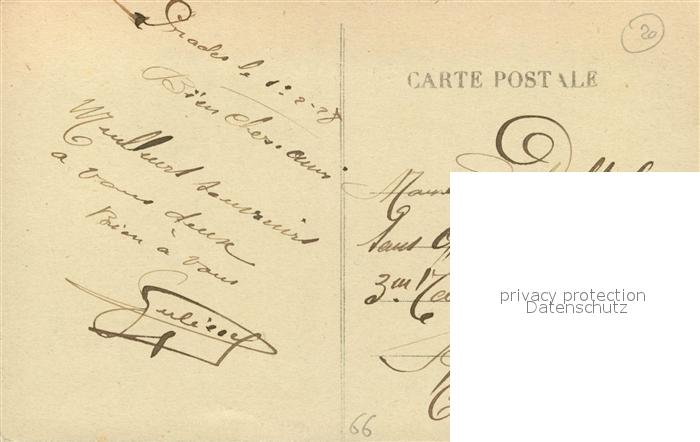 Prades le 1-2-28
Bien chers amis
Meilleurs souvenirs
à vous deux
Bien à vous
20
CARTE POSTALE
3m
66
privacy protection
Datenschutz